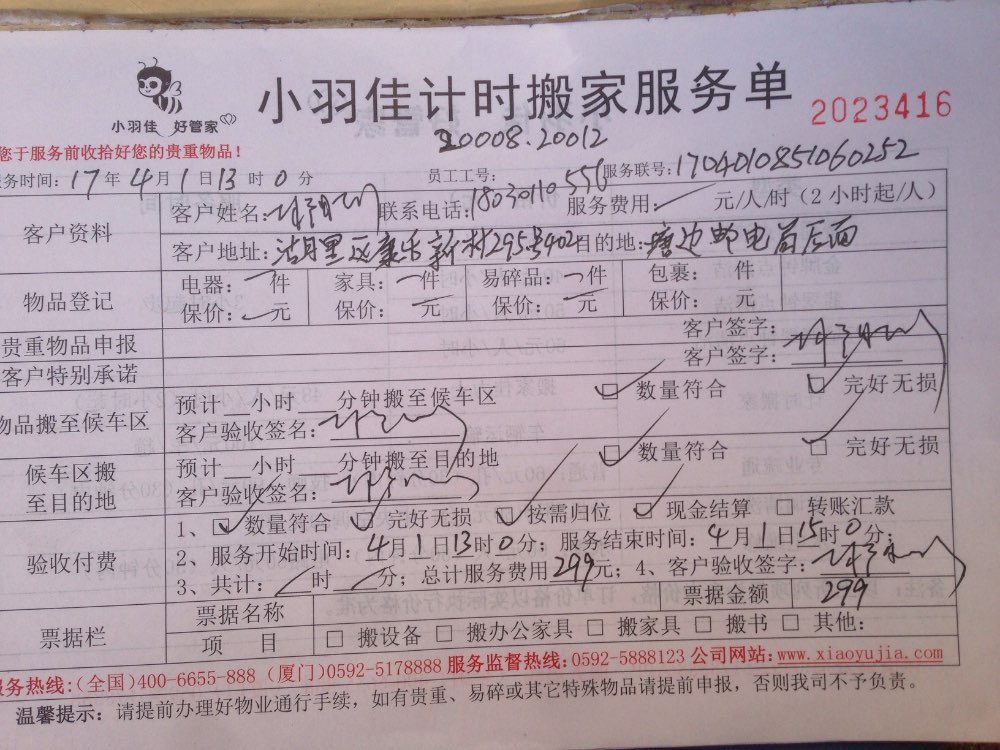 小羽佳计时搬家服务单
小羽佳 好管家
2023416
您于服务前收拾好您的贵重物品！
20008.20012
服务时间：17年4月1日13时0分 员工工号： 服务联号：1704010851060252
客户资料
客户姓名： 联系电话：18030110556 服务费用： 元/人/时（2小时起/人）
客户地址：湖里区康乐新村295号402 目的地：塘边邮电局后面
物品登记
电器：一件 家具：一件 易碎品：一件 包裹： 件
保价： 元 保价： 元 保价： 元 保价： 元
贵重物品申报 客户签字：
客户特别承诺 客户签字：
物品搬至候车区
预计__小时__分钟搬至候车区 ☑ 数量符合 ☑ 完好无损
客户验收签名：
候车区搬至目的地
预计__小时__分钟搬至目的地 ☑ 数量符合 ☑ 完好无损
客户验收签名：
验收付费
1、☑ 数量符合 ☑ 完好无损 ☑ 按需归位 ☑ 现金结算 □ 转账汇款
2、服务开始时间：4月1日13时0分；服务结束时间：4月1日15时0分；
3、共计： 时 分；总计服务费用299元；4、客户验收签字：
票据栏
票据名称 票据金额 299
项 目 □ 搬设备 □ 搬办公家具 □ 搬家具 □ 搬书 □ 其他：
服务热线：(全国)400-6655-888 (厦门)0592-5178888 服务监督热线：0592-5888123 公司网站：www.xiaoyujia.com
温馨提示：请提前办理好物业通行手续，如有贵重、易碎或其它特殊物品请提前申报，否则我司不予负责。